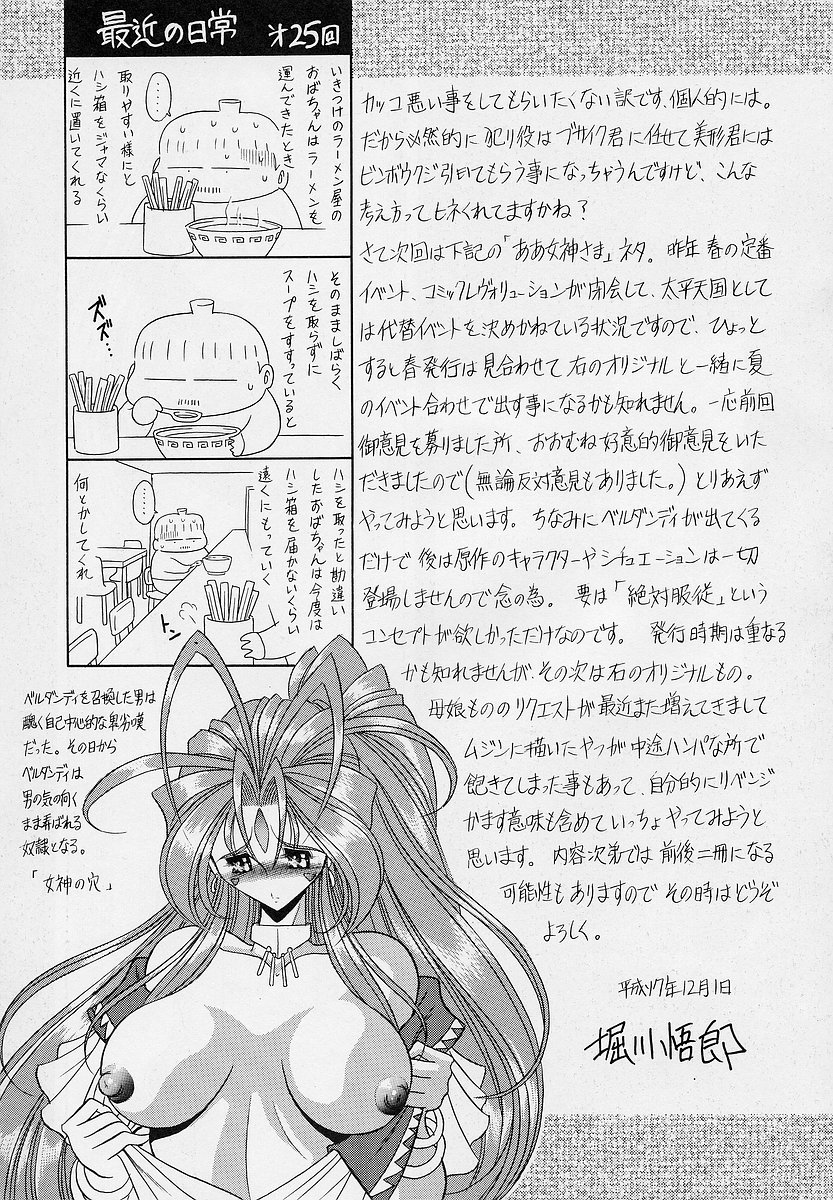 最近の日常 オ25回
いきつけのラーメン屋の
おばちゃんはラーメンを
運んできたとき
取りやすい様にと
ハシ箱をジャマなくらい
近くに置いてくれる
‥‥‥
そのまましばらく
ハシを取らずに
スープをすすっていると
ズズ…
ハシを取ったと勘違い
したおばちゃんは今度は
ハシ箱を届かないくらい
遠くにもっていく
‥‥‥
何とかしてくれ
トン
カッコ悪い事をしてもらいたくない訳です、個人的には。
だから必然的に犯り役はブサイク君に任せて美形君には
ビンボウクジ引いてもらう事になっちゃうんですけど、こんな
考え方ってヒネくれてますかね?
さて次回は下記の「ああ女神さま」ネタ。昨年春の定番
イベント、コミックレヴォリューションが閉会して、太平天国として
は代替イベントを決めかねている状況ですので、ひょっと
すると春発行は見合わせて右のオリジナルと一緒に夏
のイベント合わせで出す事になるかも知れません。一応前回
御意見を募りました所、おおむね好意的御意見をいた
だきましたので(無論反対意見もありました。)とりあえず
やってみようと思います。ちなみにベルダンディが出てくる
だけで後は原作のキャラクターやシチュエーションは一切
登場しませんので念の為。要は「絶対服従」という
コンセプトが欲しかっただけなのです。発行時期は重なる
かも知れませんが、その次は右のオリジナルもの。
母娘もののリクエストが最近また増えてきまして
ムジンに描いたやつが中途ハンパな所で
飽きてしまった事もあって、自分的にリベンジ
かます意味も含めていっちょやってみようと
思います。内容次第では前後二冊になる
可能性もありますのでその時はどうぞ
よろしく。
平成17年12月1日
堀川悟郎
ベルダンディを召喚した男は
醜く自己中心的な卑劣漢
だった。その日から
ベルダンディは
男の気の向く
まま弄ばれる
奴隷となる。
「女神の穴」